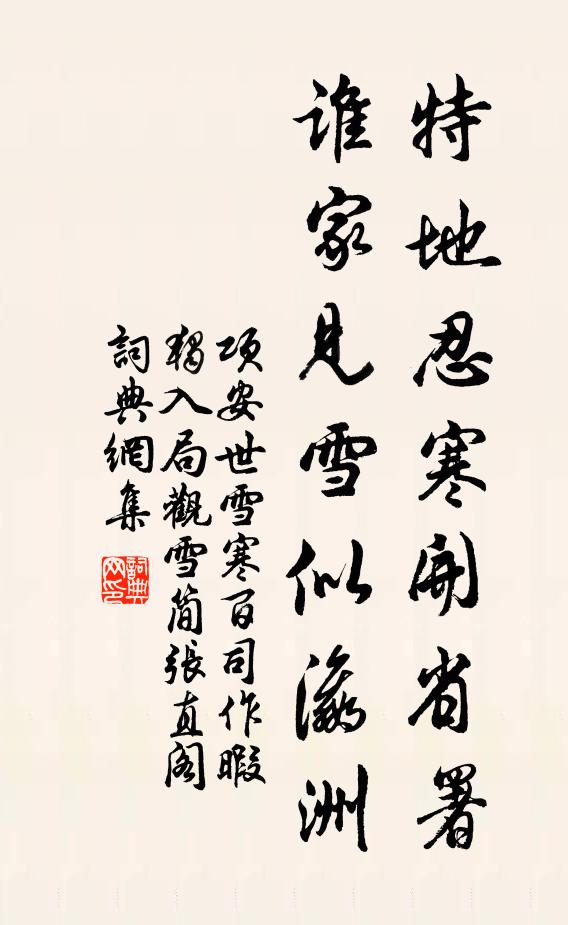 特地忍寒開省署
誰家見雪似瀛洲
項安世雪寒百司作暇
獨入局觀雪簡張直閣
詞典網集
詞典
网印